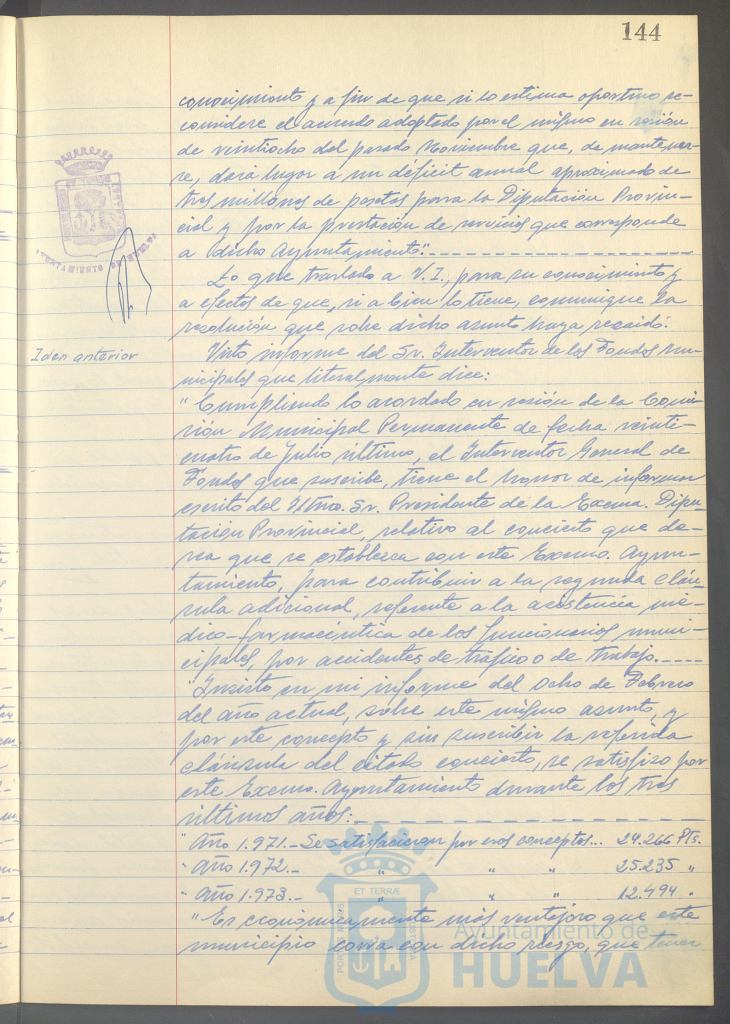 144
conocimiento y a fin de que si lo estima oportuno re-
considere el acuerdo adoptado por el mismo en sesión
de veintiocho del pasado Noviembre que, de mantener-
se, daría lugar a un déficit anual aproximado de
tres millones de pesetas para la Diputación Provin-
cial y por la prestación de servicios que corresponde
a dicho Ayuntamiento."
Lo que traslado a V.I., para su conocimiento y
a efectos de que, si a bien lo tiene, comunique la
resolución que sobre dicho asunto haya recaído.
Iden anterior
Visto informe del Sr. Interventor de los Fondos mu-
nicipales que literalmente dice:
"Cumpliendo lo acordado en sesión de la Comi-
sión Municipal Permanente de fecha veinti-
cuatro de Julio último, el Interventor General de
Fondos que suscribe, tiene el honor de informar
escrito del Iltmo. Sr. Presidente de la Excma. Dipu-
tación Provincial, relativo al concierto que de-
sea que se establezca con este Excmo. Ayun-
tamiento, para contribuir a la segunda cláu-
sula adicional, referente a la asistencia mé-
dico-farmacéutica de los funcionarios muni-
cipales, por accidentes de tráfico o de trabajo.----
Insisto en mi informe del ocho de Febrero
del año actual, sobre este mismo asunto, y
por este concepto y sin suscribir la referida
cláusula del citado concierto, se satisfizo por
este Excmo. Ayuntamiento durante los tres
últimos años:
" Año 1.971.- Se satisfacieron por esos conceptos... 24.266 Pts.
" Año 1.972.- " " " 25.235 "
" Año 1.973.- " " " 12.494 "
"Es económicamente más ventajoso que este
municipio corra con dicho riesgo, que tener
AYUNTAMIENTO DE HUELVA
PORTUS MARIS ET TERRÆ CUSTODIA
Ayuntamiento de
HUELVA